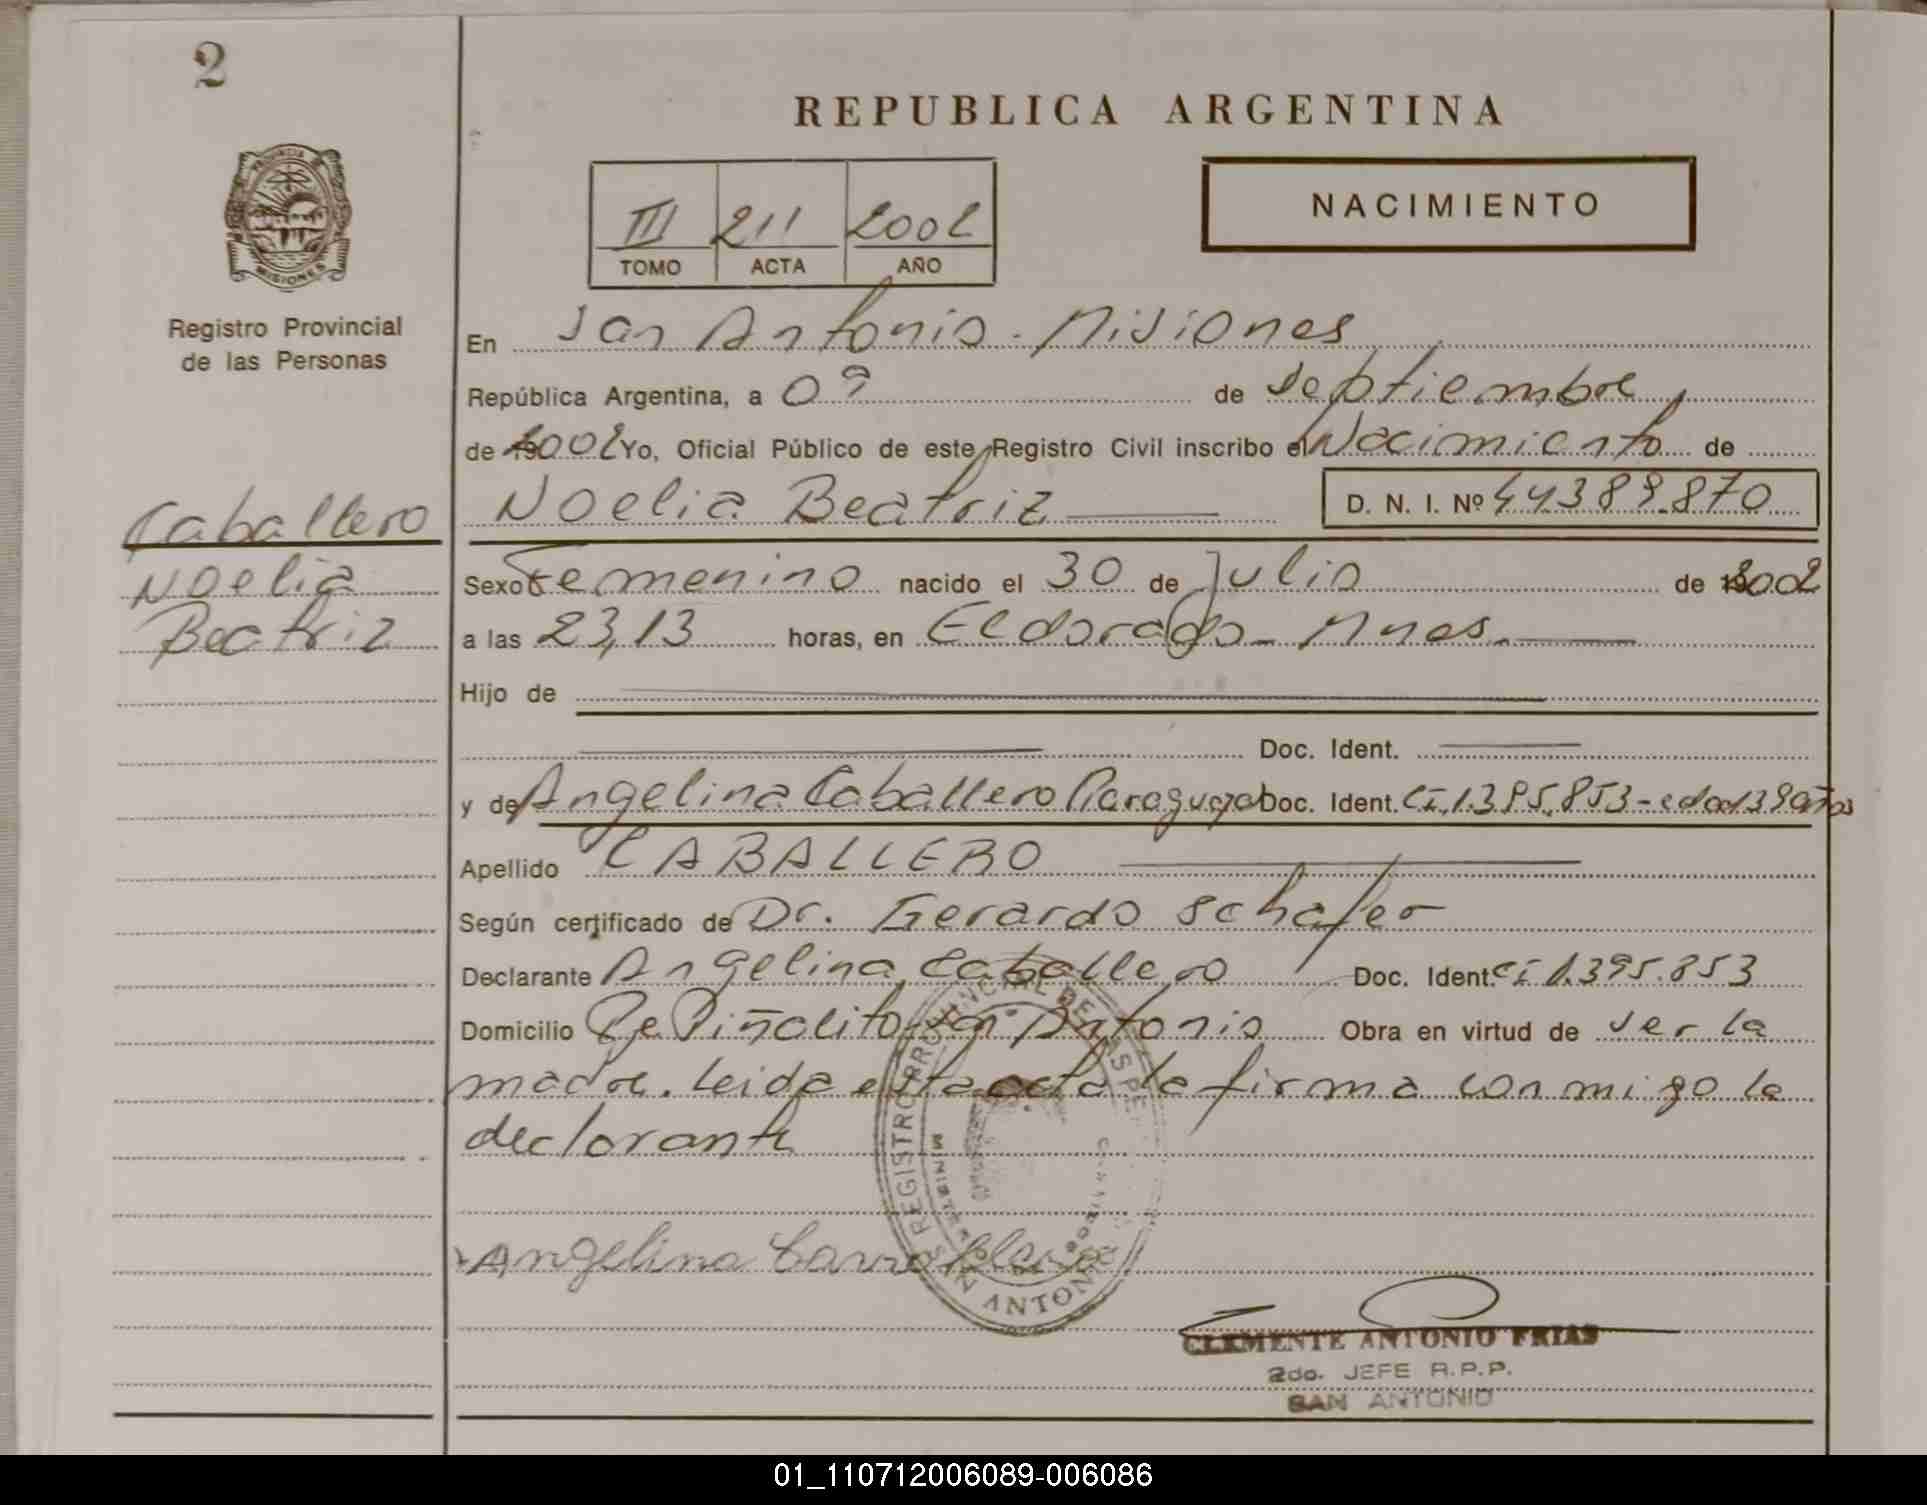 2
REPUBLICA ARGENTINA
PROVINCIA DE
MISIONES
Registro Provincial
de las Personas
III 211 2002
TOMO ACTA AÑO
NACIMIENTO
En San Antonio - Misiones
República Argentina, a 09 de Septiembre
de 2002 Yo, Oficial Público de este Registro Civil inscribo el Nacimiento de
Noelia Beatriz D. N. I. Nº 44389.870
Caballero
Noelia
Beatriz
Sexo Femenino nacido el 30 de Julio de 2002
a las 23,13 horas, en Eldorado - Mnes.
Hijo de
Doc. Ident.
y de Angelina Caballero Paraguaya Doc. Ident. CI. 1.395.853 - edad 39 años
Apellido CABALLERO
Según certificado de Dr. Gerardo Schafer
Declarante Angelina Caballero Doc. Ident. CI 1.395.853
Domicilio Pje Piñalito San Antonio Obra en virtud de ser la
madre. Leida esta acta la firma conmigo la
declarante
REGISTRO PROVINCIAL DE LAS PER
MINISTER
SAN ANTONIO
Angelina
CLEMENTE ANTONIO FRIAS
2do. JEFE R.P.P.
SAN ANTONIO
01_110712006089-006086